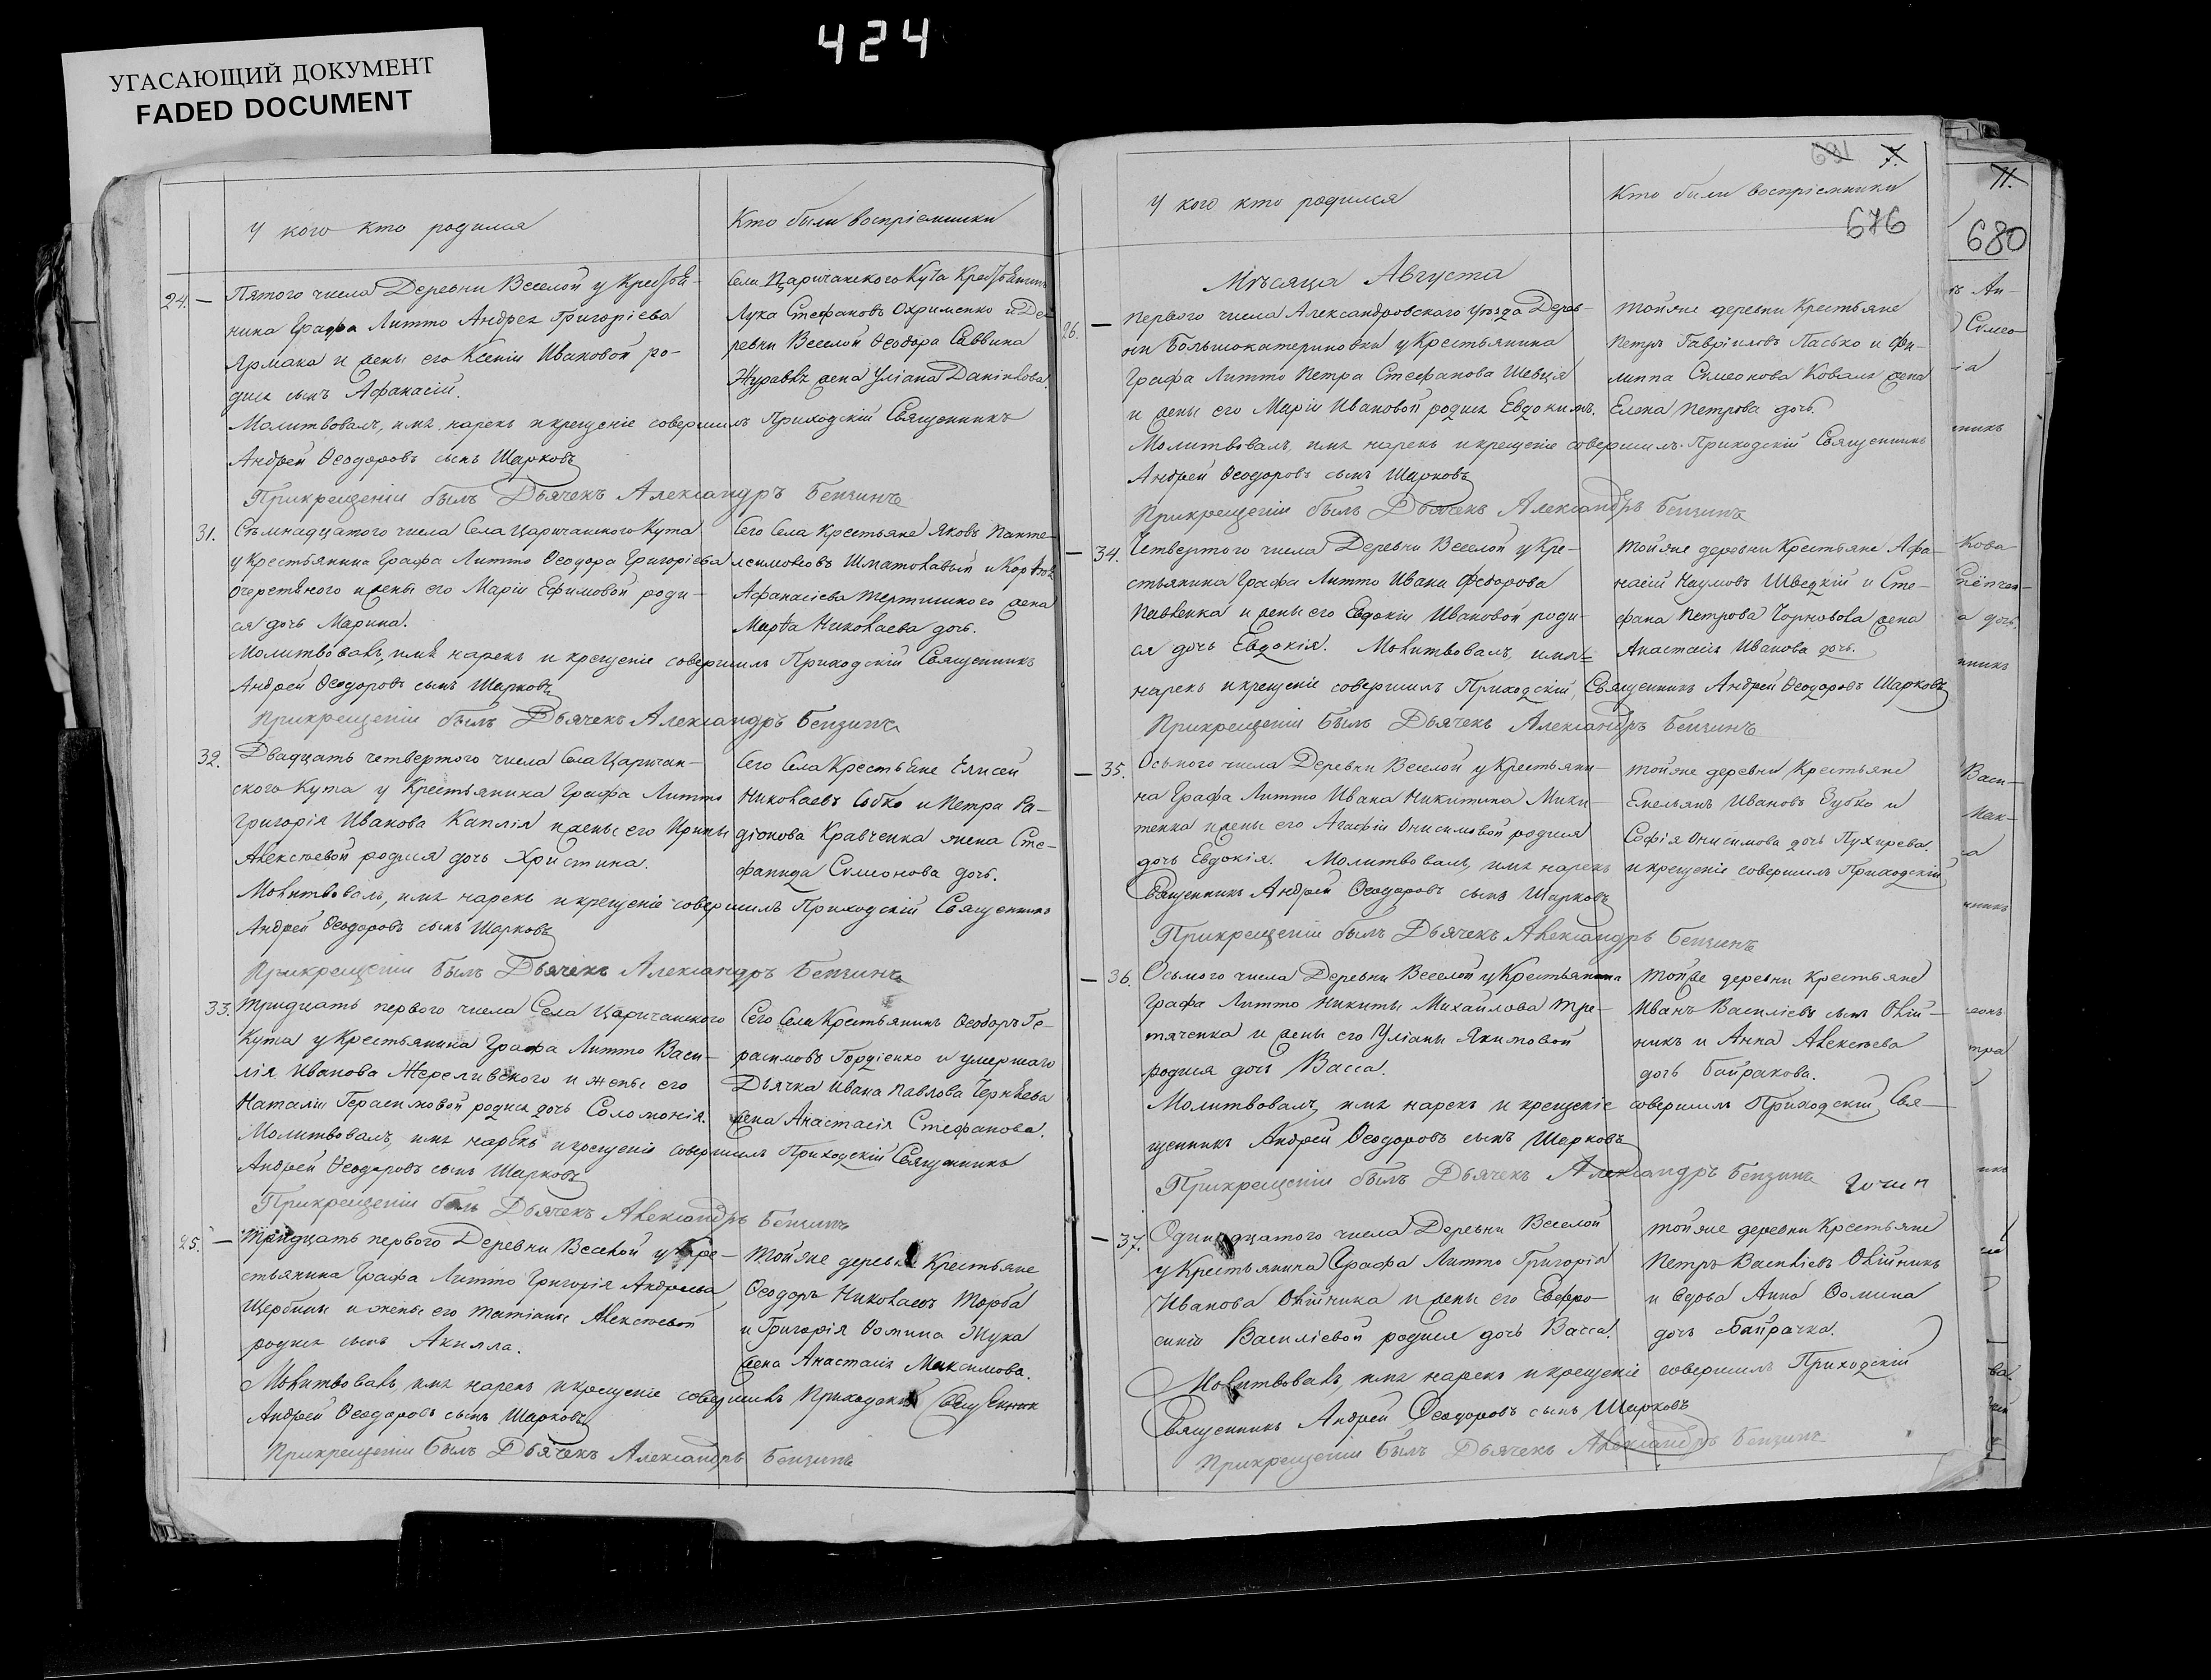 424
УГАСАЮЩИЙ ДОКУМЕНТ
FADED DOCUMENT
У кого кто родился
Кто были воспріемники
24. — Пятого числа Деревни Веселой у Крестья-
нина Графа Литто Андрея Григоріева
Ярмака и жены его Ксеніи Ивановой ро-
дися сынъ Афанасій.
Села Царичанского Кута Крестьянинъ
Лука Стефановъ Охрименко и Де-
ревни Веселой Ѳеодора Саввина
Журавля жена Уліана Данінлова.
Молитвовалъ, имя нарекъ и крещеніе совершилъ Приходскій Священникъ
Андрей Ѳеодоровъ сынъ Шарковъ
При крещеніи былъ Дьячекъ Александръ Бензинъ
31. Съмнадцатого числа Села Царичанского Кута
у Крестьянина Графа Литто Ѳеодора Григоріева
Очеретяного и жены его Маріи Ефимовой роди-
ся дочь Марина.
Сего Села Крестьяне Яковъ Панте-
леимоновъ Шматоκавый и
Афанасіева Тертишного жена
Марѳа Николаева дочь.
Молитвовалъ, имя нарекъ и крещеніе совершилъ Приходскій Священникъ
Андрей Ѳеодоровъ сынъ Шарковъ
При крещеніи былъ Дьячекъ Александръ Бензинъ
32. Двадцать четвертого числа Села Царичан-
ского Кута у Крестьянина Графа Литто
Григорія Иванова Каплія и жены его Ирины
Алексѣевой родися дочь Христина.
Сего Села Крестьяне Елисей
Николаевъ Собко и Петра Ра-
діонова Кравченка жена Сте-
фанида Симеонова дочь.
Молитвовалъ, имя нарекъ и крещеніе совершилъ Приходскій Священникъ
Андрей Ѳеодоровъ сынъ Шарковъ
При крещеніи былъ Дьячекъ Александръ Бензинъ
33. Тридцать первого числа Села Царичанского
Кута у Крестьянина Графа Литто Васи-
лія Иванова Жереливского и жены его
Наталіи Герасимовой родися дочь Соломонія.
Сего Села Крестьянинъ Ѳеодоръ Ге-
расимовъ Гордіенко и умершаго
Дьячка Ивана Павлова Черняева
жена Анастасія Стефанова.
Молитвовалъ, имя нарекъ и крещеніе совершилъ Приходскій Священникъ
Андрей Ѳеодоровъ сынъ Шарковъ
При крещеніи былъ Дьячекъ Александръ Бензинъ
25. — Тридцать первого Деревни Веселой у Кре-
стьянина Графа Литто Григорія Андреева
Щербины и жены его Татіаны Алексѣевой
родися сынъ Акилла.
Тойже деревни Крестьяне
Ѳеодоръ Николаевъ Торба
и Григорія Ѳомина Жука
жена Анастасія Максимова.
Молитвовалъ, имя нарекъ и крещеніе совершилъ Приходскій Священник
Андрей Ѳеодоровъ сынъ Шарковъ
При крещеніи былъ Дьячекъ Александръ Бензинъ
681 7.
У кого кто родился
Кто были воспріемники
676
Мѣсяца Августа
26. — Первого числа Александровского уѣзда Дерев-
ни Большокатериновки у Крестьянина
Графа Литто Петра Стефанова Шевця
и жены его Маріи Ивановой родися Евдокимъ.
Тойже деревни Крестьяне
Петръ Гавріиловъ Пасько и Фи-
липпа Симеонова Коваля жена
Елена Петрова дочь.
Молитвовалъ, имя нарекъ и крещеніе совершилъ Приходскій Священникъ
Андрей Ѳеодоровъ сынъ Шарковъ
При крещеніи былъ Дьячекъ Александръ Бензинъ
— 34. Четвертого числа Деревни Веселой у Кре-
стьянина Графа Литто Ивана Федорова
Павленка и жены его Евдокіи Ивановой роди-
ся дочь Евдокія. Молитвовалъ, имя=
Тойже деревни Крестьяне Афа-
насій Наумовъ Шведкій и Сте-
фана Петрова Чорновола жена
Анастасія Иванова дочь.
нарекъ и крещеніе совершилъ Приходскій Священникъ Андрей Ѳеодоровъ Шарковъ
При крещеніи былъ Дьячекъ Александръ Бензинъ
— 35. Осьмого числа Деревни Веселой у Крестьяни-
на Графа Литто Ивана Никитина Мики-
тенка и жены его Агафіи Онисимовой родися
Тойже деревни Крестьяне
Емельянъ Ивановъ Зубко и
Софія Онисимова дочь Пухирева.
дочь Евдокія. Молитвовалъ, имя нарекъ и крещеніе совершилъ Приходскій
Священникъ Андрей Ѳеодоровъ сынъ Шарковъ
При крещеніи былъ Дьячекъ Александръ Бензинъ
— 36. Осьмого числа Деревни Веселой у Крестьянина
Графа Литто Никиты Михайлова Тре-
тяченка и жены его Уліаны Якимовой
родися дочь Васса.
Тойже деревни Крестьяне
Иванъ Василіевъ сынъ Олій-
никъ и Анна Алексѣева
дочь Байракова.
Молитвовалъ, имя нарекъ и крещеніе совершилъ Приходскій Свя-
щенникъ Андрей Ѳеодоровъ сынъ Шарковъ
При крещеніи былъ Дьячекъ Александръ Бензинъ
— 37. Одинадцатого числа Деревни Веселой
у Крестьянина Графа Литто Григорія
Иванова Олійника и жены его Евфро-
синіи Василіевой родися дочь Васса.
Тойже деревни Крестьяне
Петръ Василіевъ Олійникъ
и вдова Анна Ѳомина
дочь Байрачка.
Молитвовалъ, имя нарекъ и крещеніе совершилъ Приходскій
Священникъ Андрей Ѳеодоровъ сынъ Шарковъ
При крещеніи былъ Дьячекъ Александръ Бензинъ
11.
680